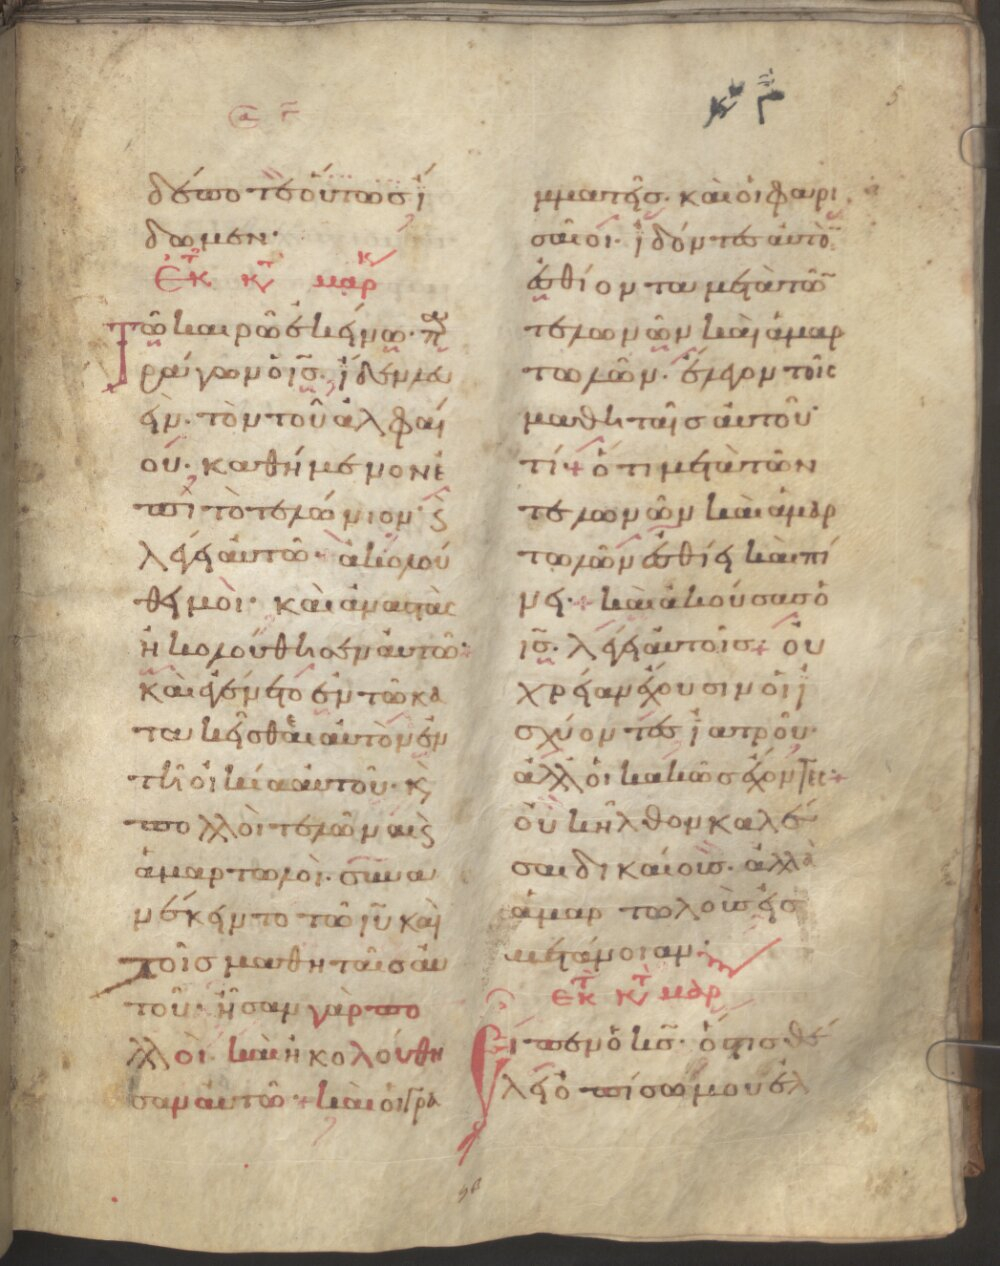 δέποτε οὕτως εἴ
δωμεν·
Ἐκ τ κτ μαρκ
Τῶ καιρῶ ἐκείνω· πα
ράγων ὁ ις· ἴδεν λε
ειν· τὸν τοῦ ἀλφαί
ου· καθήμενον ἐ
πὶ τὸ τελώνιον· ϗ
λέγει αὐτῶ + ἀκολού
θει μοι· καὶ ἀναστὰς
ἠκολούθησεν αὐτῶ +
καὶ ἐγένετο ἐν τῶ κα
τακεῖσθαι αὐτὸν ἐν
τῆ οἰκία αὐτοῦ· ϗ
πολλοὶ τελῶναι ϗ
ἁμαρτωλοὶ· συνα
νέκειντο τῶ ιυ καὶ
τοῖς μαθηταῖς αὐ
τοῦ· ἦσαν γὰρ πο
λλοὶ· καὶ ἠκολούθη
σαν αὐτῶ + καὶ οἱ γρα
μματεῖς· καὶ οἱ φαρι
σαῖοι· ἰδόντες αὐτὸν
ἐσθίοντα μετὰ τῶν
τελωνῶν καὶ ἁμαρ
τωλῶν· ἔλεγον τοῖς
μαθηταῖς αὐτοῦ
τί + ὅτι μετὰ τῶν
τελωνῶν καὶ ἁμαρ
τωλῶν ἐσθίει καὶ πί
νει + καὶ ἀκούσας ὁ
ις· λέγει αὐτοῖς + οὐ
χρείαν ἔχουσιν οἱ ἰ
σχύοντες ἰατροῦ·
ἀλλ οἱ κακῶς ἔχοντες +
οὐκ ἦλθον καλέ
σαι δικαίους· ἀλλὰ
ἁμαρτωλοὺς εἰς
μετάνοιαν·
εκ τ κτ μαρ
Εἶπεν ὁ κς· ὅστις θέ
λει ὀπίσω μου ἐλ